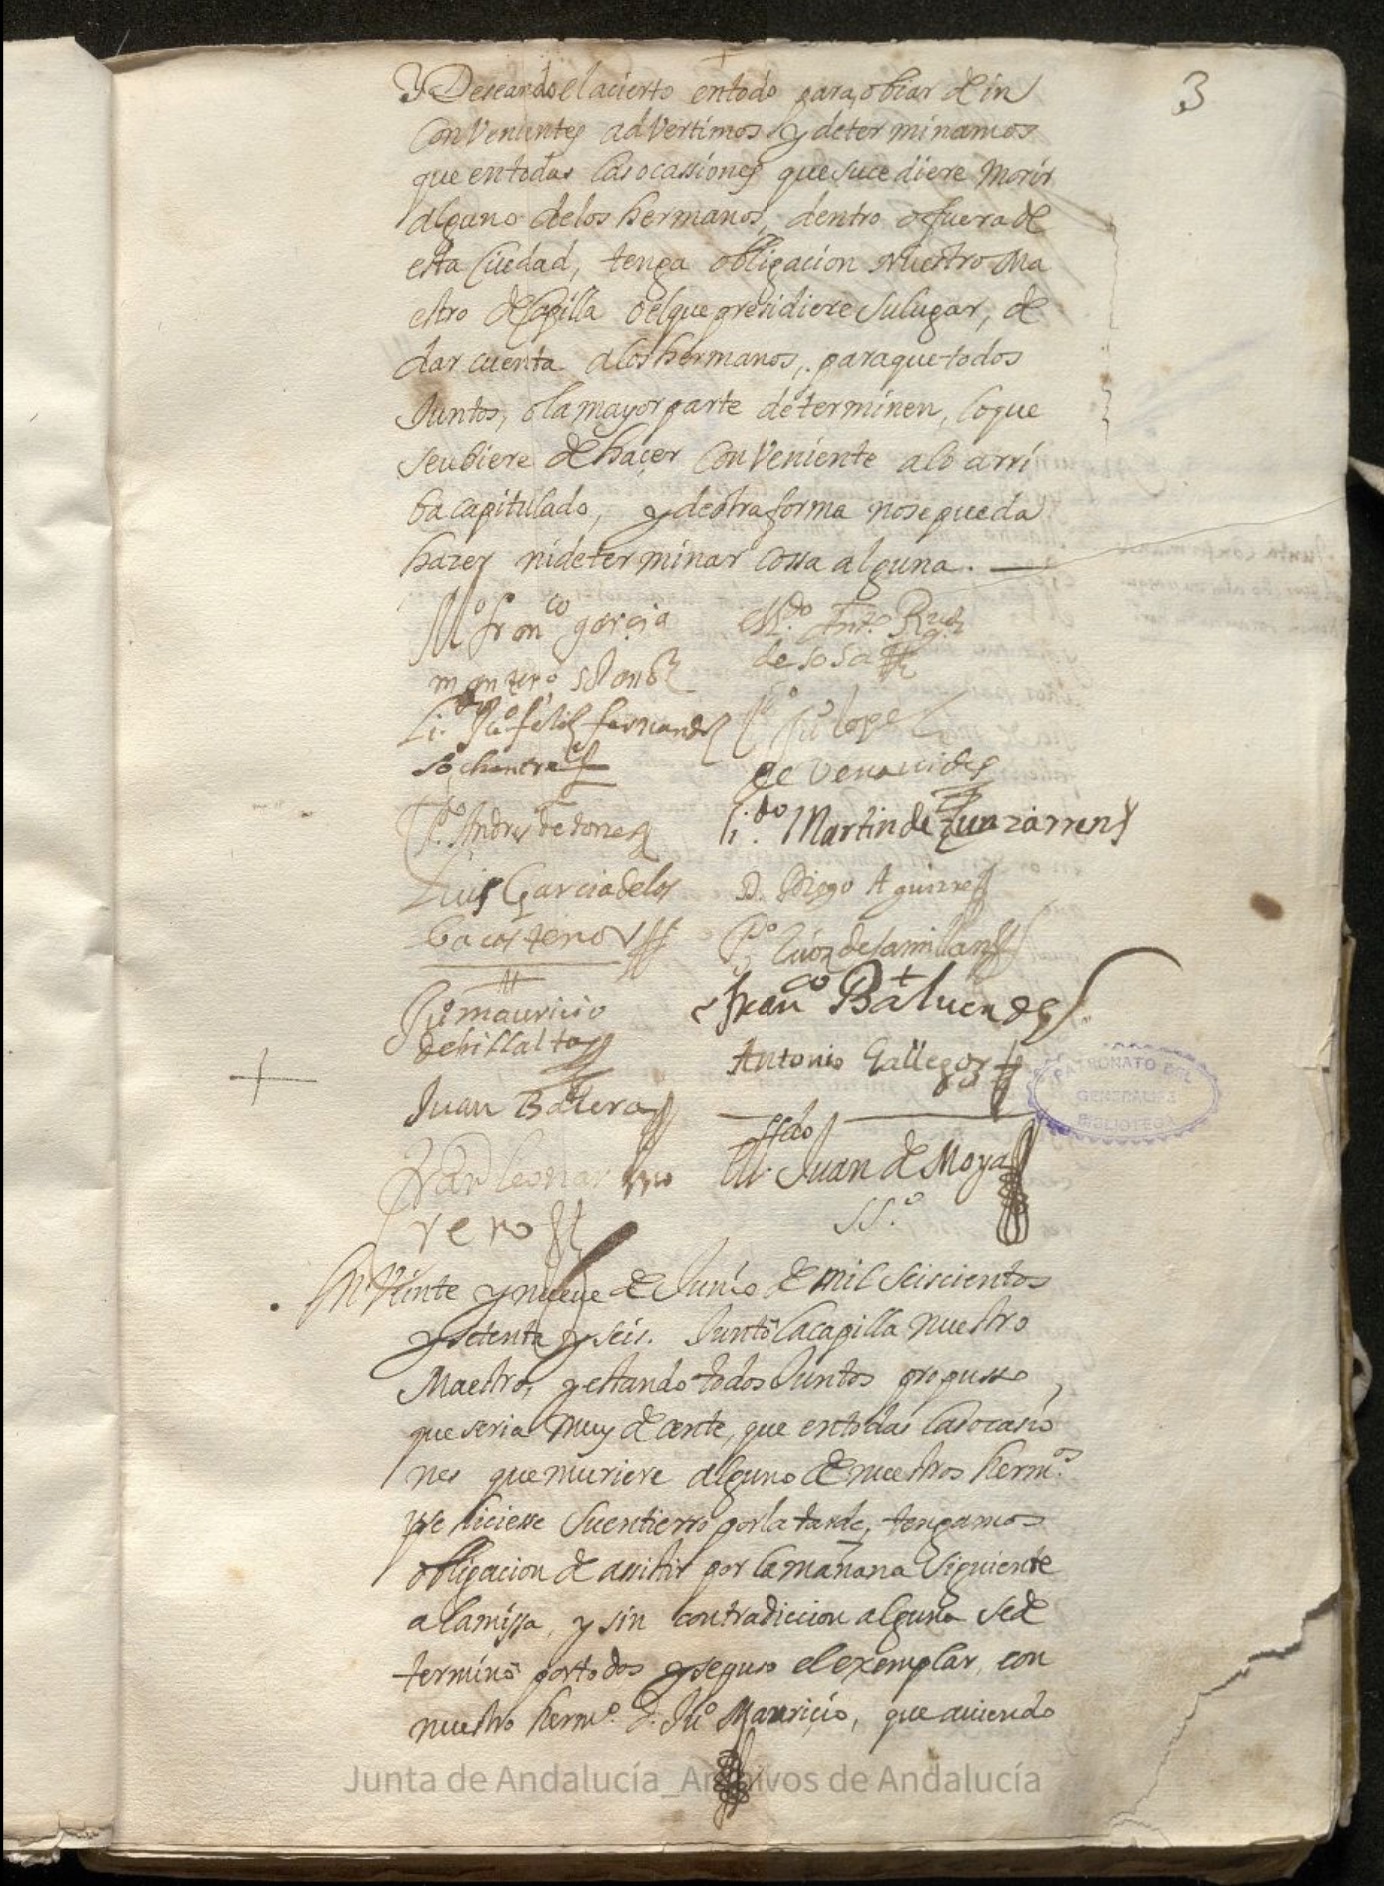 3
Y Deseando el acierto en todo para obiar de in
conVenientes adVertimos y determinamos
que en todas las ocassiones que sucediere Morir
alguno de los hermanos, dentro o fuera de
esta Ciudad, tenga obligacion Nuestro Ma
estro de Capilla o el que presidiere su lugar, de
dar cuenta a los hermanos, para que todos
Juntos, o la mayor parte determinen, lo que
se ubiere de haçer ConVeniente a lo arri
ba capitulado, y de otra forma no se pueda
hazer ni determinar cossa alguna.
Mº franco garçia
montero solano
Ldo. Antº Rz
de sosa
Li.do Juº felix fernandez
sochantre
Juº lopez
de Venavides
Andres de torres
Li.do Martin de Zunzarren
Luis Garcia de los
Cacasteno
D. Diego Aguirre
Pº de samillan
Juº mauricio
de billalta
franco Bat luendes
Antonio Gallegos
Juan Batera
Juan leonar
vero
Ldo Juan de Moya
SS.º
PATRONATO DEL
GENERALIFE
BIBLIOTECA
En Veinte y nueve de Junio de mil seiscientos
y setenta y seis. Juntó la capilla nuestro
Maestro, y estando todos Juntos propusso,
que seria muy decente, que en todas las ocasio
nes que muriere alguno de nuestros hermos.
y se hiciesse su entierro por la tarde, tengamos
obligacion de assistir por la mañana siguiente
a la missa, y sin contradiccion alguna se de
terminó por todos y seguso el exemplar, con
nuestro hermº. D. Juº Mauriçio, que auiendo
Junta de Andalucía_Archivos de Andalucía